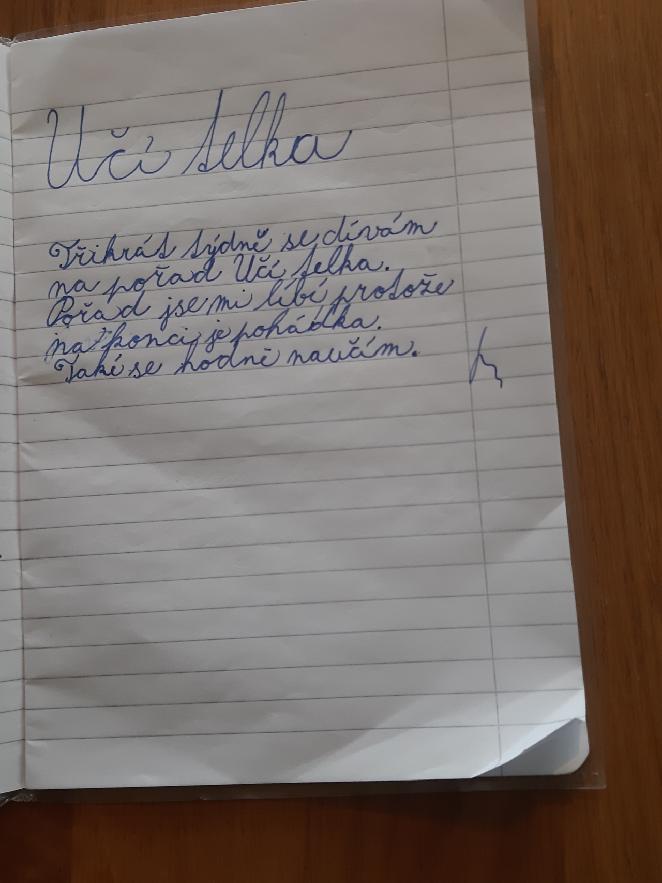 Učí telka
Třikrát týdně se dívám
na pořad Učí telka.
Pořad jse mi líbí protože
na konci je pohádka.
Také se hodně naučím.